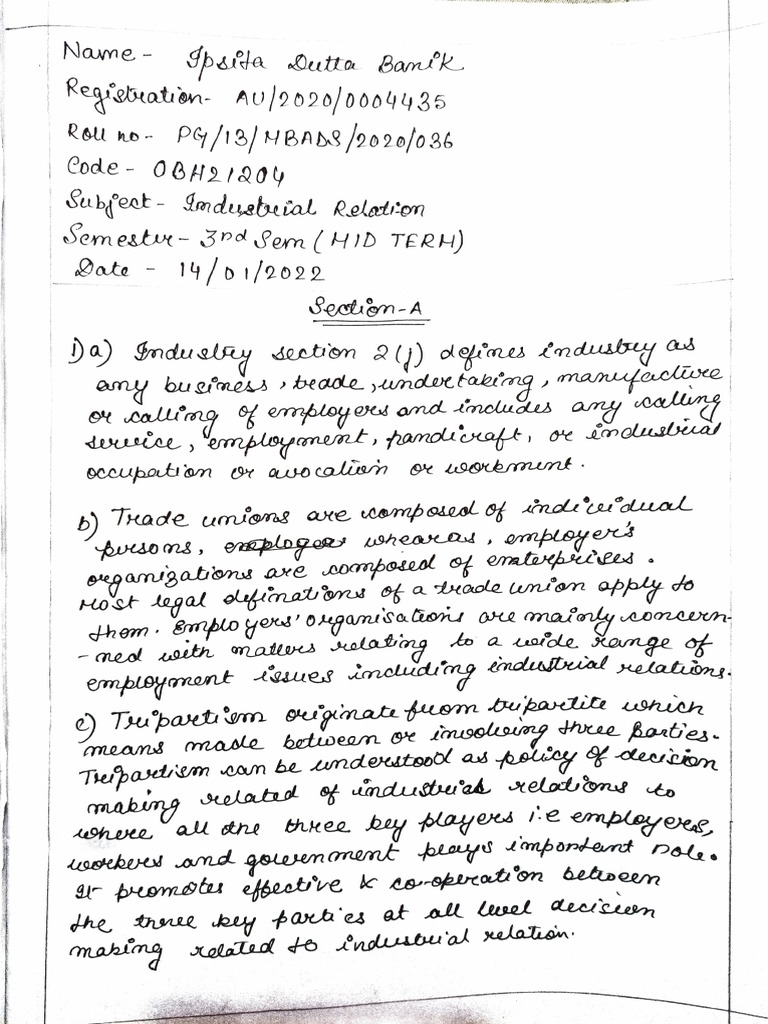 Name - Ipsita Dutta Banik
Registration - AU/2020/0004435
Roll no - PG/13/MBADS/2020/036
Code - OBH21204
Subject - Industrial Relation
Semester - 3rd Sem (MID TERM)
Date - 14/01/2022
Section-A
1) a) Industry section 2(j) defines industry as
any business, trade, undertaking, manufacture
or calling of employers and includes any calling
service, employment, handicraft, or industrial
occupation or avocation or workment.
b) Trade unions are composed of individual
persons, whearas, employer's
organizations are composed of enterprises.
Most legal definations of a trade union apply to
them. Employers' organisations are mainly concern-
-ned with matters relating to a wide range of
employment issues including industrial relations.
c) Tripartism originate from tripartite which
means made between or involving three parties.
Tripartism can be understood as policy of decision
making related of industrial relations to
where all the three key players i.e employers,
workers and government plays important role.
It promotes effective & co-operation between
the three key parties at all level decision
making related to industrial relation.